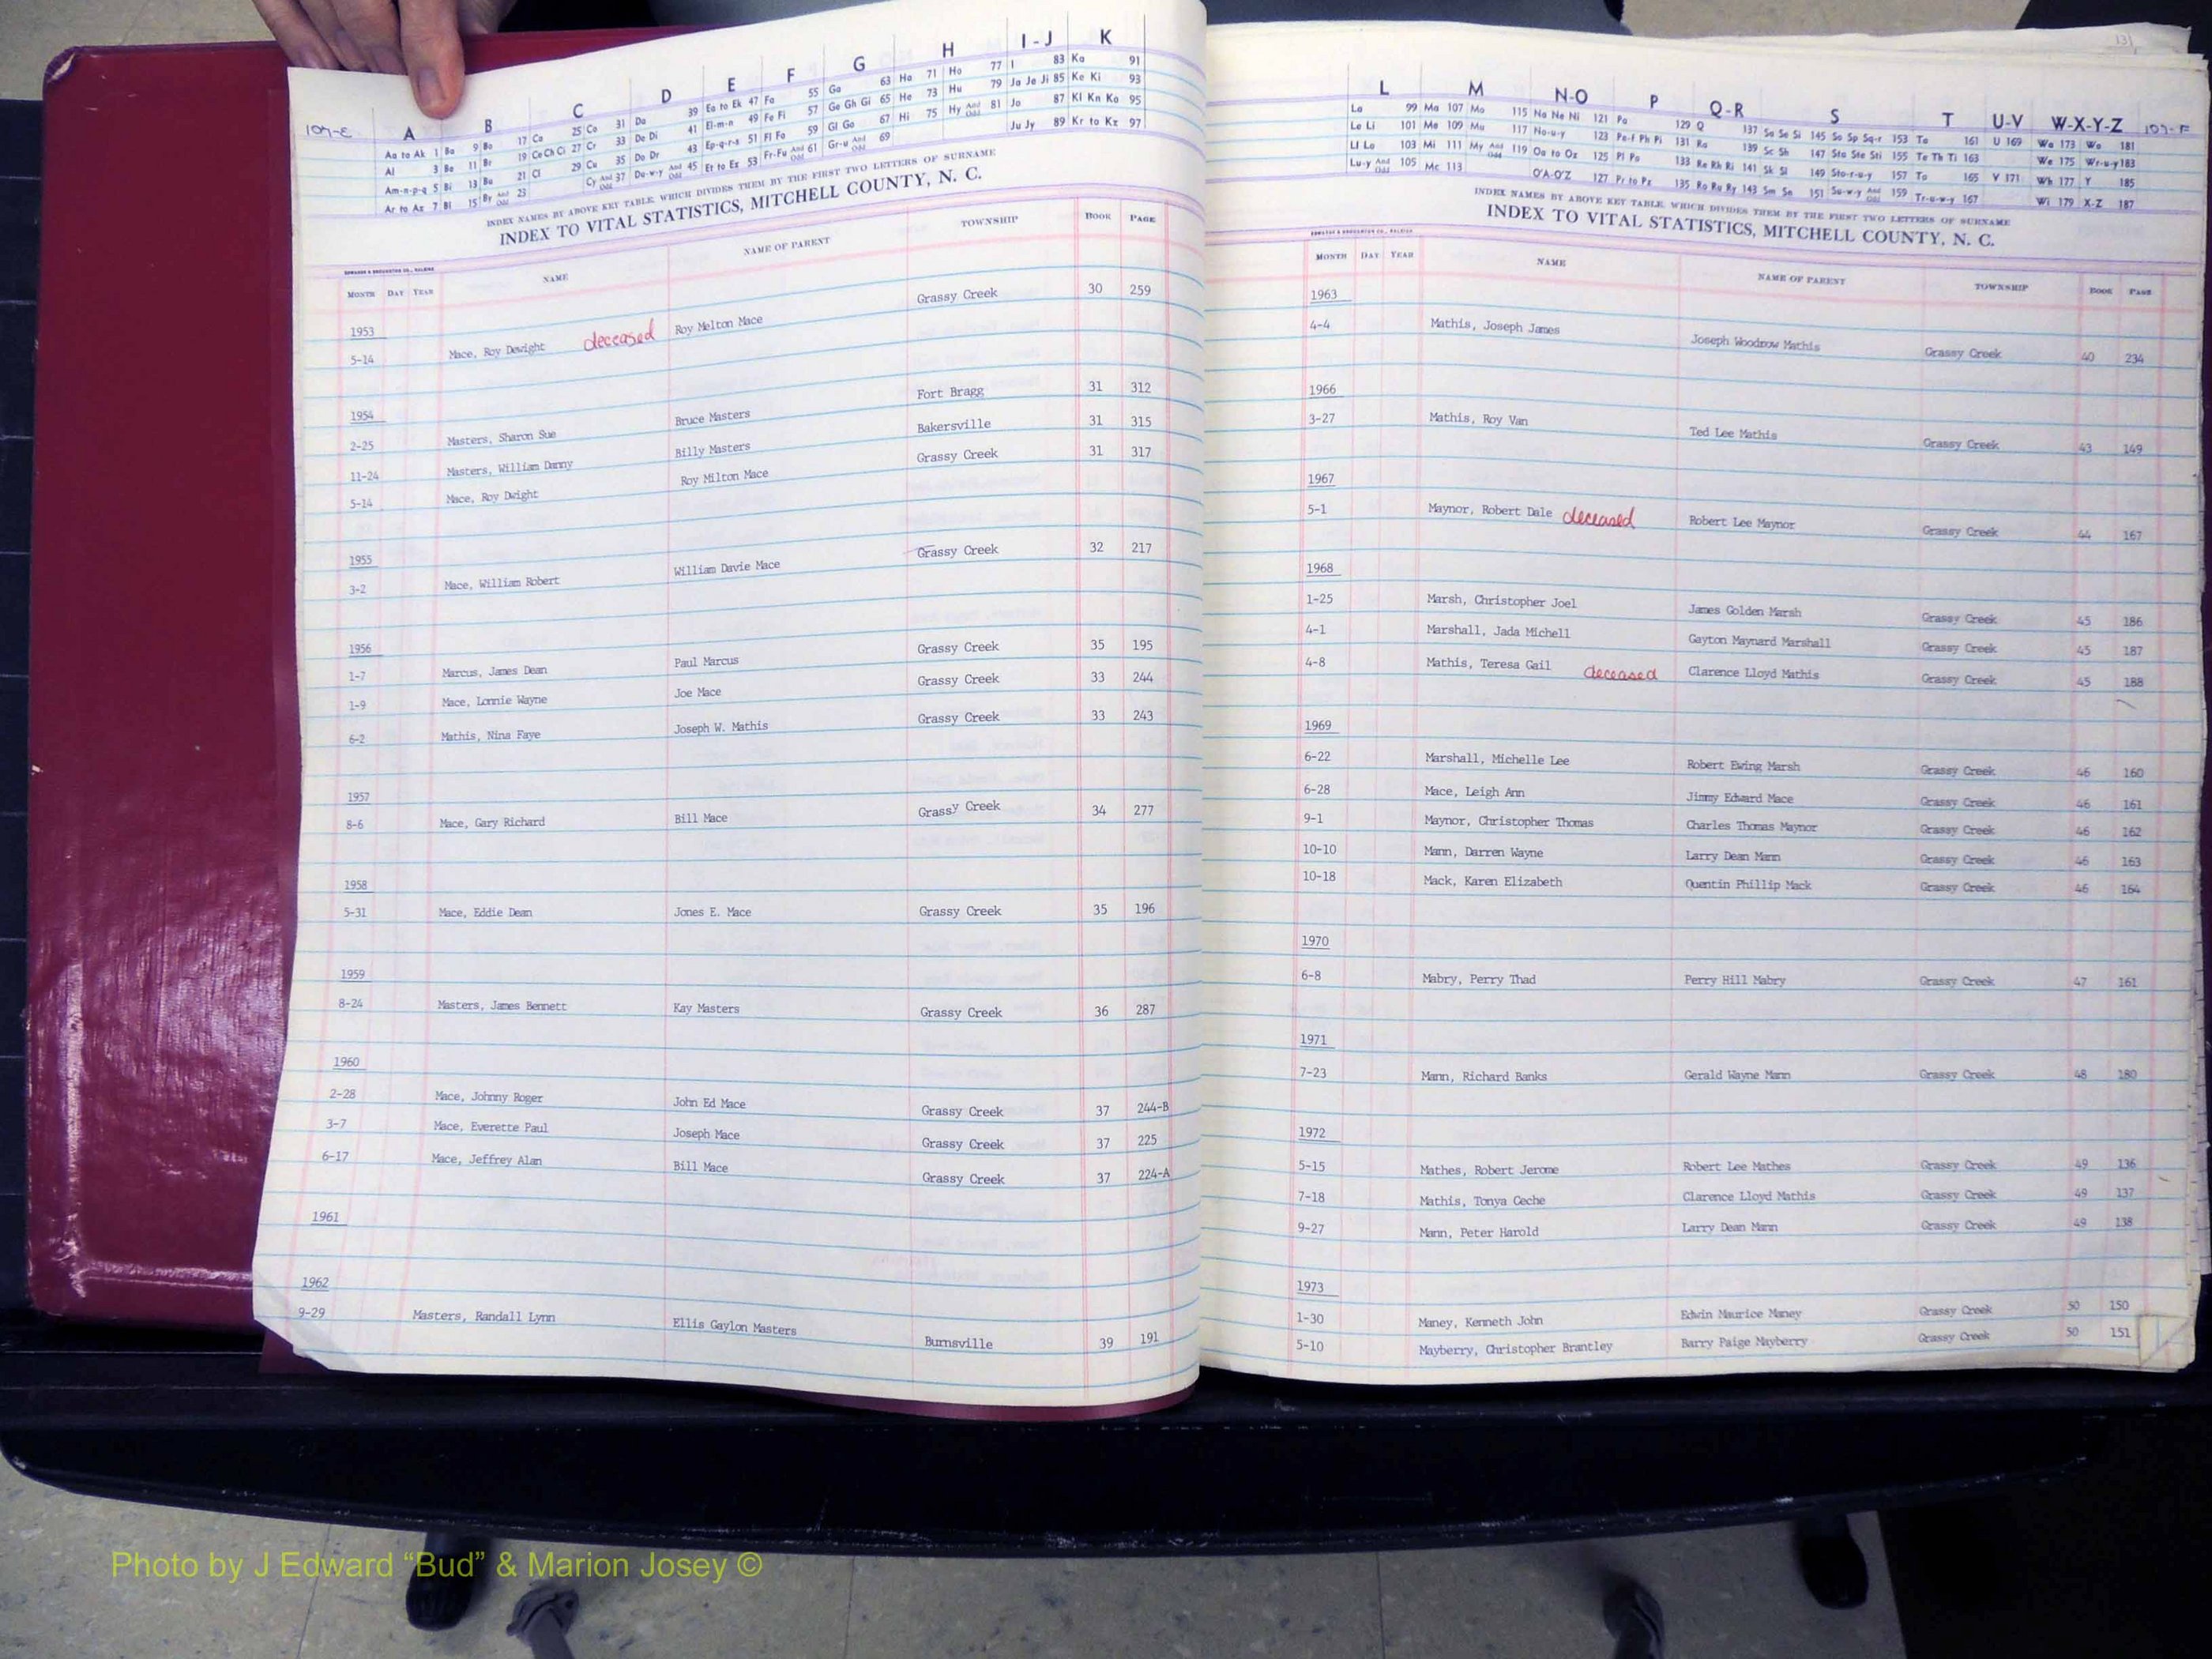 107-E
A B C D E F G H I-J K
Aa to Ak 1 Ba 9 Bo 17 Ca 25 Co 31 Da 39 Ea to Ek 47 Fa 55 Ga 63 Ha 71 Ho 77 I 83 Ka 91
Al 3 Be 11 Br 19 Ce Ch Ci 27 Cr 33 De Di 41 El-m-n 49 Fe Fi 57 Ge Gh Gi 65 He 73 Hu 79 Ja Je Ji 85 Ke Ki 93
Am-n-p-q 5 Bi 13 Bu 21 Cl 29 Cu 35 Do Dr 43 Ep-q-r-s 51 Fl Fo 59 Gl Go 67 Hi 75 Hy And Odd 81 Jo 87 Kl Kn Ko 95
Ar to Az 7 Bl 15 By And Odd 23 Cy And Odd 37 Du-w-y And Odd 45 Et to Ez 53 Fr-Fu And Odd 61 Gr-u And Odd 69 Ju Jy 89 Kr to Kz 97
INDEX NAMES BY ABOVE KEY TABLE, WHICH DIVIDES THEM BY THE FIRST TWO LETTERS OF SURNAME
INDEX TO VITAL STATISTICS, MITCHELL COUNTY, N. C.
EDWARDS & BROUGHTON CO., RALEIGH
MONTH DAY YEAR NAME NAME OF PARENT TOWNSHIP BOOK PAGE
1953
5-14 Mace, Roy Dewight deceased Roy Melton Mace Grassy Creek 30 259
1954
2-25 Masters, Sharon Sue Bruce Masters Fort Bragg 31 312
11-24 Masters, William Danny Billy Masters Bakersville 31 315
5-14 Mace, Roy Dwight Roy Milton Mace Grassy Creek 31 317
1955
3-2 Mace, William Robert William Davie Mace Grassy Creek 32 217
1956
1-7 Marcus, James Dean Paul Marcus Grassy Creek 35 195
1-9 Mace, Lonnie Wayne Joe Mace Grassy Creek 33 244
6-2 Mathis, Nina Faye Joseph W. Mathis Grassy Creek 33 243
1957
8-6 Mace, Gary Richard Bill Mace Grassy Creek 34 277
1958
5-31 Mace, Eddie Dean Jones E. Mace Grassy Creek 35 196
1959
8-24 Masters, James Bennett Kay Masters Grassy Creek 36 287
1960
2-28 Mace, Johnny Roger John Ed Mace Grassy Creek 37 244-B
3-7 Mace, Everette Paul Joseph Mace Grassy Creek 37 225
6-17 Mace, Jeffrey Alan Bill Mace Grassy Creek 37 224-A
1961
1962
9-29 Masters, Randall Lynn Ellis Gaylon Masters Burnsville 39 191
131
L M N-O P Q-R S T U-V W-X-Y-Z 107-F
La 99 Ma 107 Mo 115 Na Ne Ni 121 Pa 129 Q 137 Sa Se Si 145 So Sp Sq-r 153 Ta 161 U 169 Wa 173 Wo 181
Le Li 101 Me 109 Mu 117 No-u-y 123 Pe-f Ph Pi 131 Ra 139 Sc Sh 147 Sta Ste Sti 155 Te Th Ti 163 We 175 Wr-u-y 183
Ll Lo 103 Mi 111 My And Odd 119 Oa to Oz 125 Pl Po 133 Re Rh Ri 141 Sk Sl 149 Sto-r-u-y 157 To 165 V 171 Wh 177 Y 185
Lu-y And Odd 105 Mc 113 O'A-O'Z 127 Pr to Pz 135 Ro Ru Ry 143 Sm Sn 151 Su-w-y And Odd 159 Tr-u-w-y 167 Wi 179 X-Z 187
INDEX NAMES BY ABOVE KEY TABLE, WHICH DIVIDES THEM BY THE FIRST TWO LETTERS OF SURNAME
INDEX TO VITAL STATISTICS, MITCHELL COUNTY, N. C.
EDWARDS & BROUGHTON CO., RALEIGH
MONTH DAY YEAR NAME NAME OF PARENT TOWNSHIP BOOK PAGE
1963
4-4 Mathis, Joseph James Joseph Woodrow Mathis Grassy Creek 40 234
1966
3-27 Mathis, Roy Van Ted Lee Mathis Grassy Creek 43 149
1967
5-1 Maynor, Robert Dale deceased Robert Lee Maynor Grassy Creek 44 167
1968
1-25 Marsh, Christopher Joel James Golden Marsh Grassy Creek 45 186
4-1 Marshall, Jada Michell Gayton Maynard Marshall Grassy Creek 45 187
4-8 Mathis, Teresa Gail deceased Clarence Lloyd Mathis Grassy Creek 45 188
1969
6-22 Marshall, Michelle Lee Robert Ewing Marsh Grassy Creek 46 160
6-28 Mace, Leigh Ann Jimmy Edward Mace Grassy Creek 46 161
9-1 Maynor, Christopher Thomas Charles Thomas Maynor Grassy Creek 46 162
10-10 Mann, Darren Wayne Larry Dean Mann Grassy Creek 46 163
10-18 Mack, Karen Elizabeth Quentin Phillip Mack Grassy Creek 46 164
1970
6-8 Mabry, Perry Thad Perry Hill Mabry Grassy Creek 47 161
1971
7-23 Mann, Richard Banks Gerald Wayne Mann Grassy Creek 48 180
1972
5-15 Mathes, Robert Jerome Robert Lee Mathes Grassy Creek 49 136
7-18 Mathis, Tonya Geche Clarence Lloyd Mathis Grassy Creek 49 137
9-27 Mann, Peter Harold Larry Dean Mann Grassy Creek 49 138
1973
1-30 Maney, Kenneth John Edwin Maurice Maney Grassy Creek 50 150
5-10 Mayberry, Christopher Brantley Barry Paige Mayberry Grassy Creek 50 151
Photo by J Edward “Bud” & Marion Josey ©